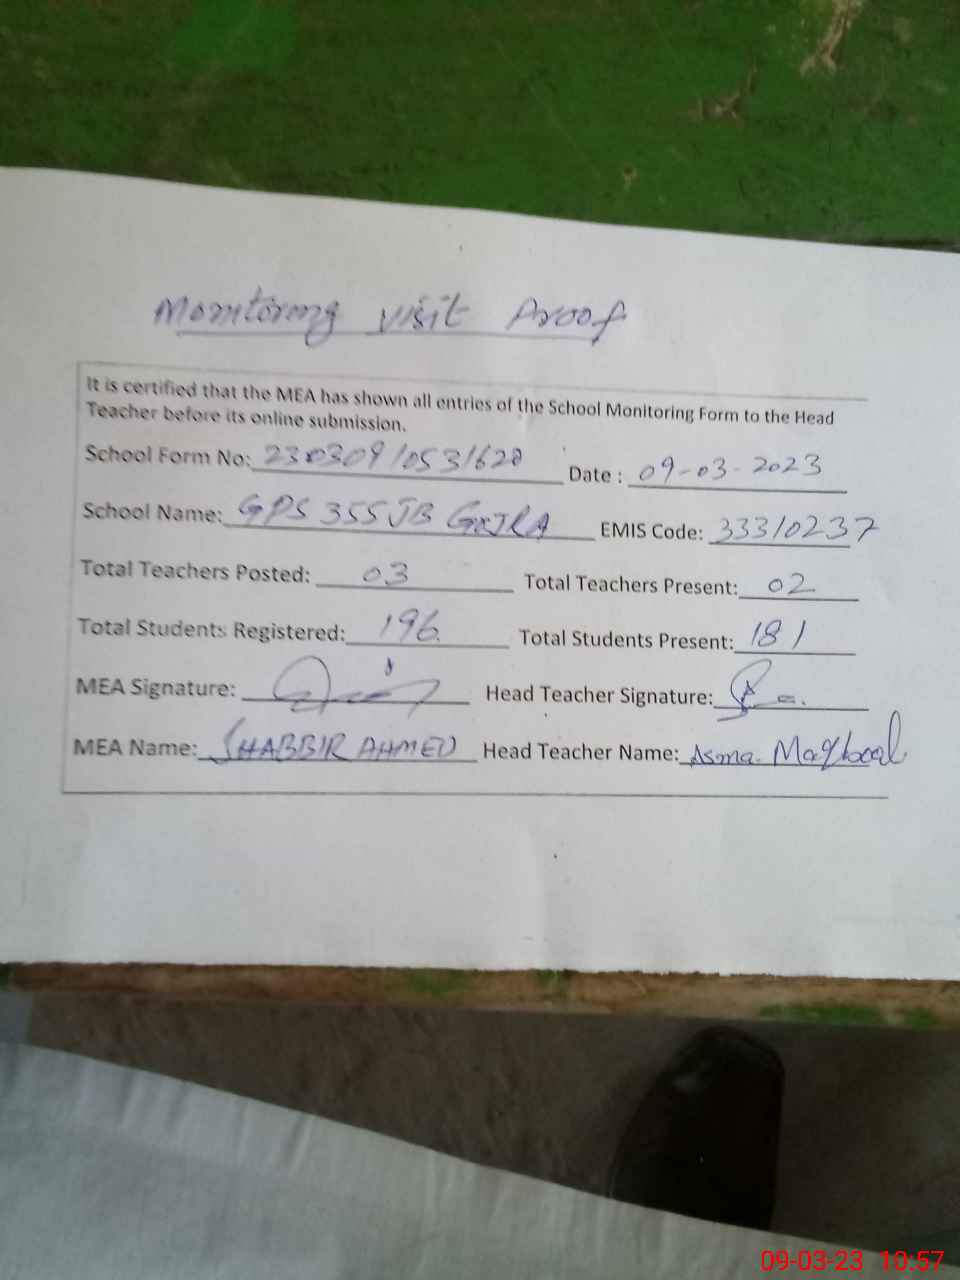 Monitoring visit Proof
It is certified that the MEA has shown all entries of the School Monitoring Form to the Head
Teacher before its online submission.
School Form No: 230309 10531620 Date : 09-03-2023
School Name: GPS 355 JB GOJRA EMIS Code: 33310237
Total Teachers Posted: 03 Total Teachers Present: 02
Total Students Registered: 196 Total Students Present: 181
MEA Signature: Head Teacher Signature:
MEA Name: SHABBIR AHMED Head Teacher Name: Asma Maqbool
09-03-23 10:57